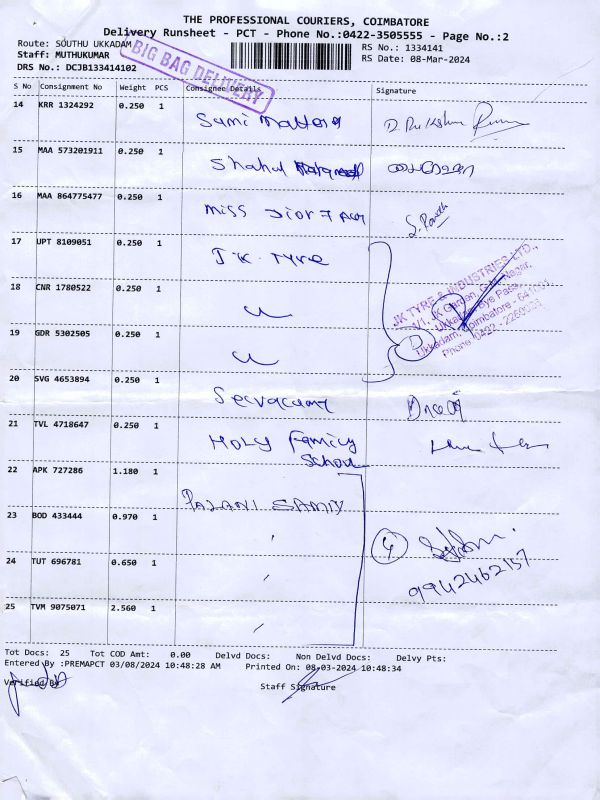 THE PROFESSIONAL COURIERS, COIMBATORE
Delivery Runsheet - PCT - Phone No.:0422-3505555 - Page No.:2
Route: SOUTHU UKKADAM RS No.: 1334141
Staff: MUTHUKUMAR RS Date: 08-Mar-2024
DRS No.: DCJB133414102
BIG BAG DELIVERY
S No Consignment No Weight PCS Consignee Details Signature
14 KRR 1324292 0.250 1 Sami
15 MAA 573201911 0.250 1 Shahul
16 MAA 864775477 0.250 1 Miss Dior
17 UPT 8109051 0.250 1 J K. Tyre
18 CNR 1780522 0.250 1
JK TYRE & INDUSTRIES LTD.,
Phone: 0422
19 GDR 5302505 0.250 1
20 SVG 4653894 0.250 1
21 TVL 4718647 0.250 1 HOLY Family
School
22 APK 727286 1.180 1 PALANI SAMY
23 BOD 433444 0.970 1 4
24 TUT 696781 0.650 1 9942462157
25 TVM 9075071 2.560 1
Tot Docs: 25 Tot COD Amt: 0.00 Delvd Docs: Non Delvd Docs: Delvy Pts:
Entered By :PREMAPCT 03/08/2024 10:48:28 AM Printed On: 08-03-2024 10:48:34
Verified By
Staff Signature